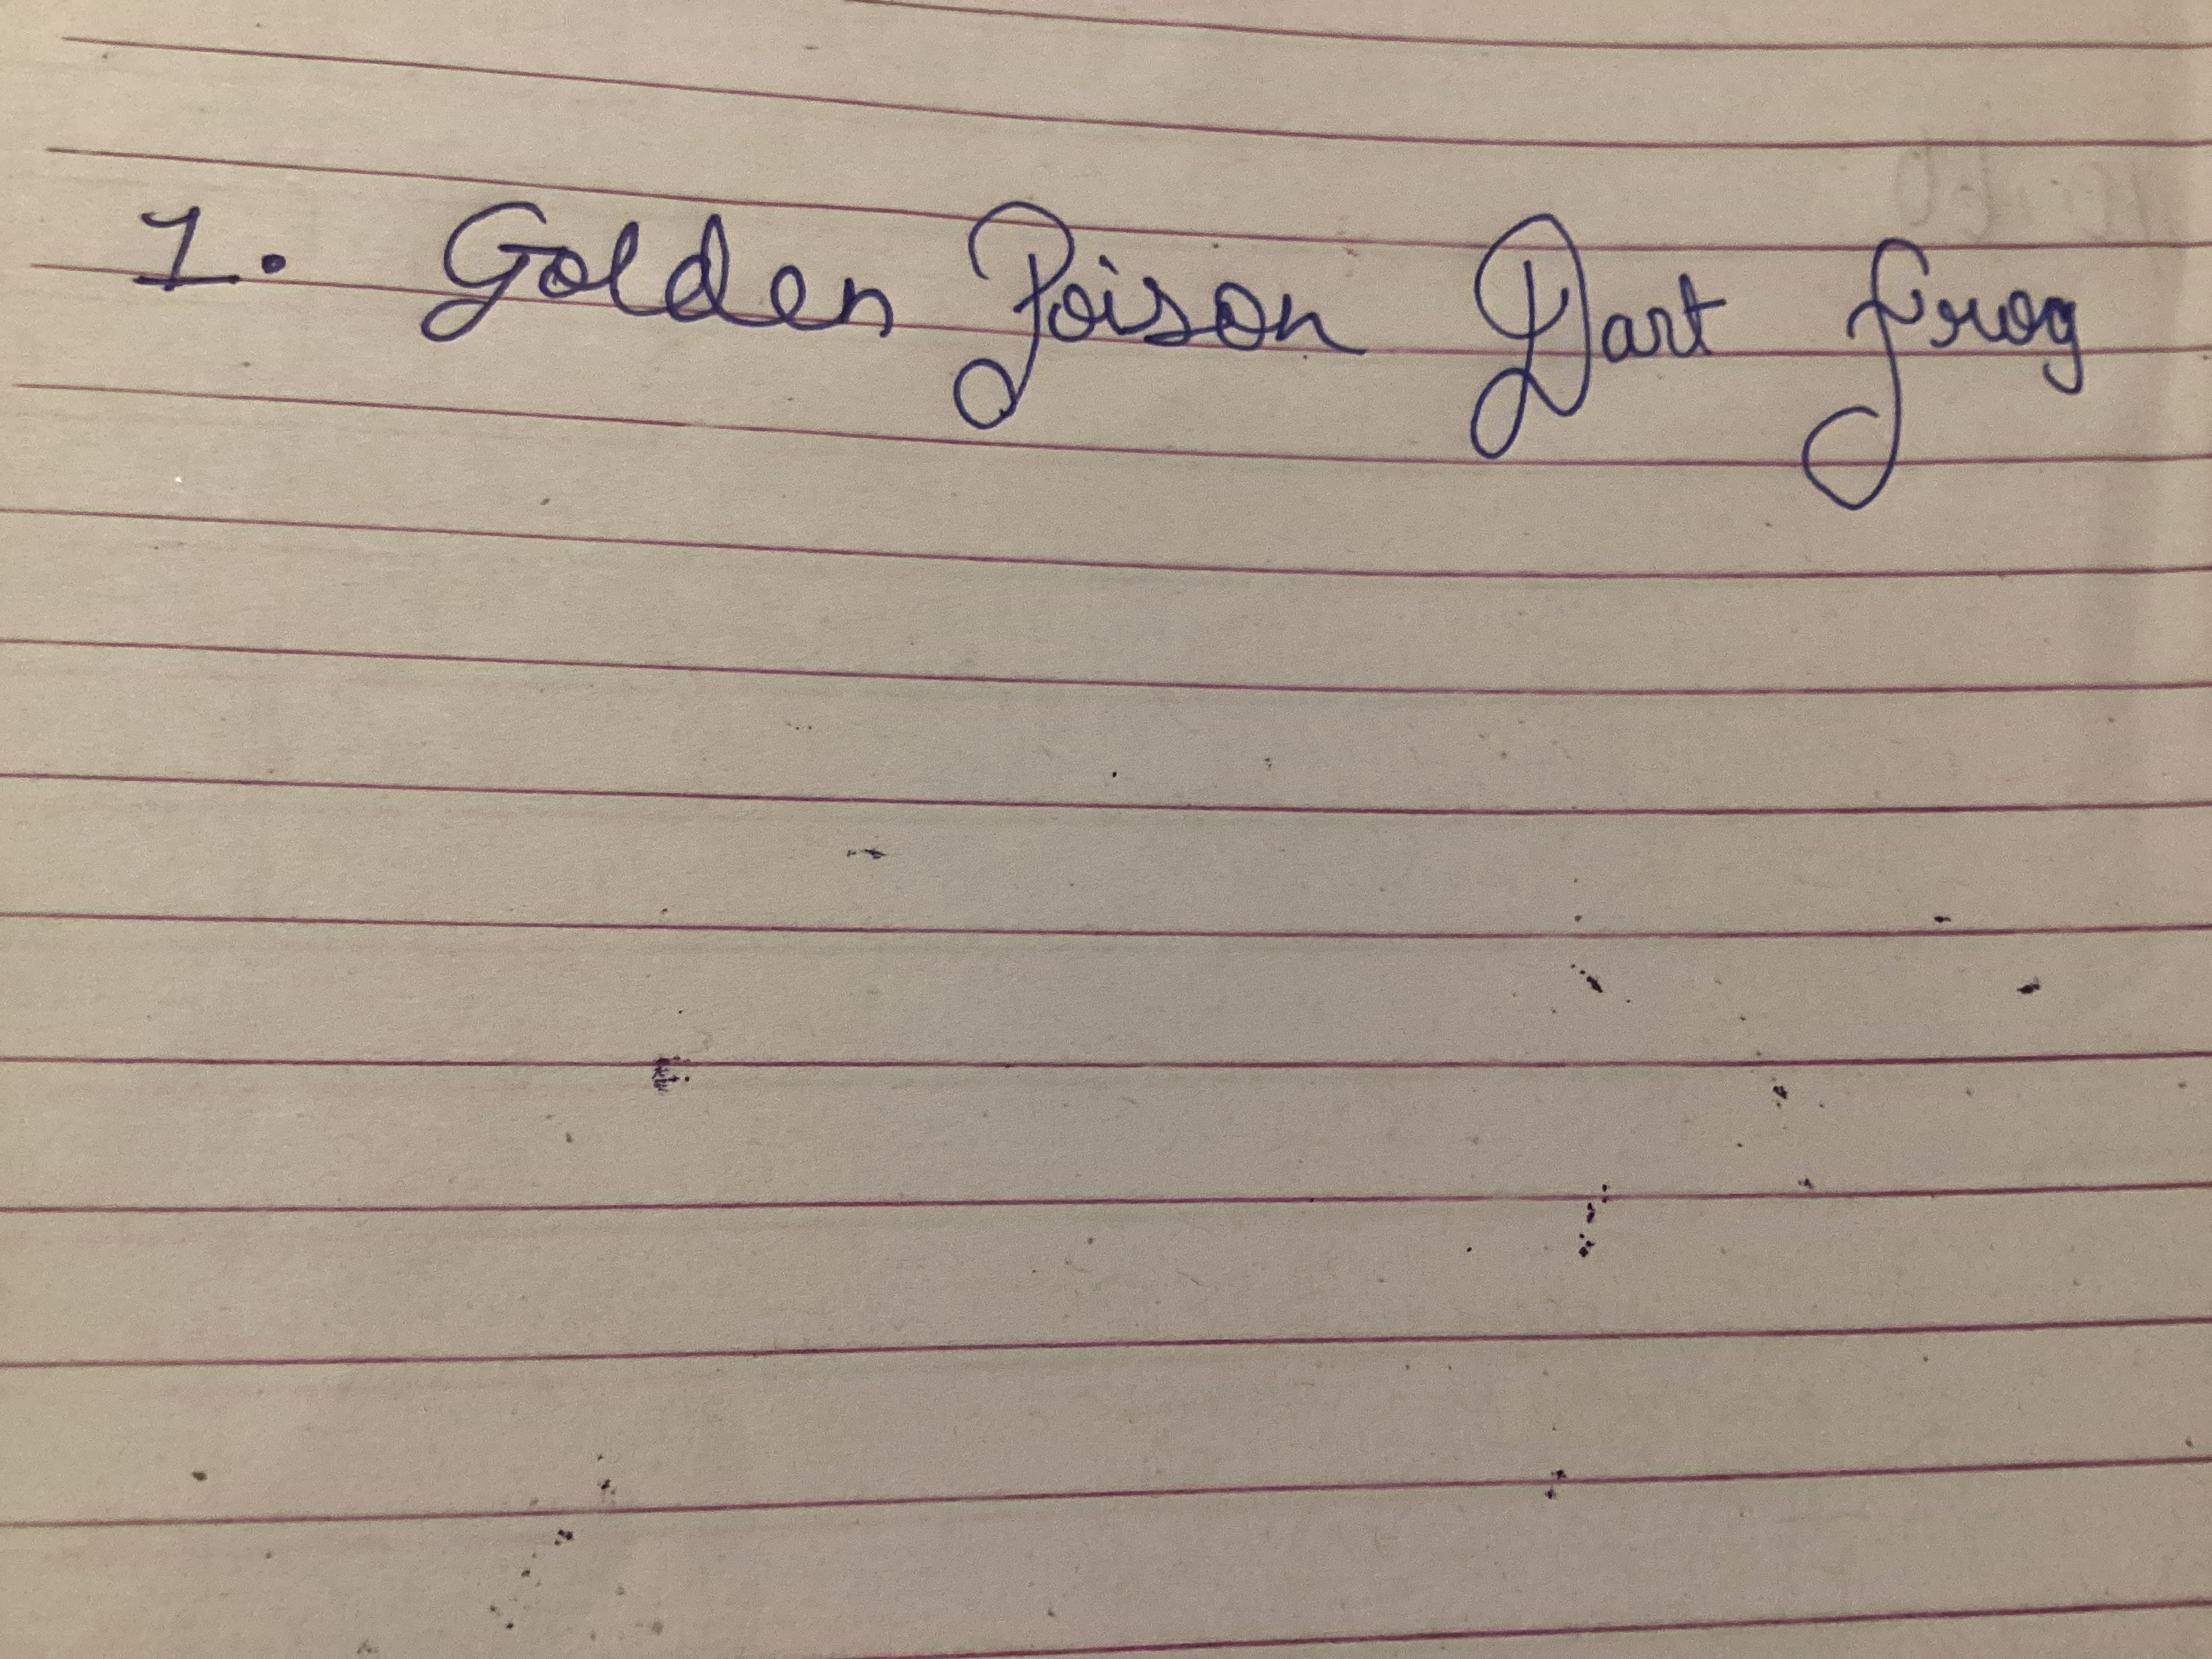 1. Golden Poison Dart frog